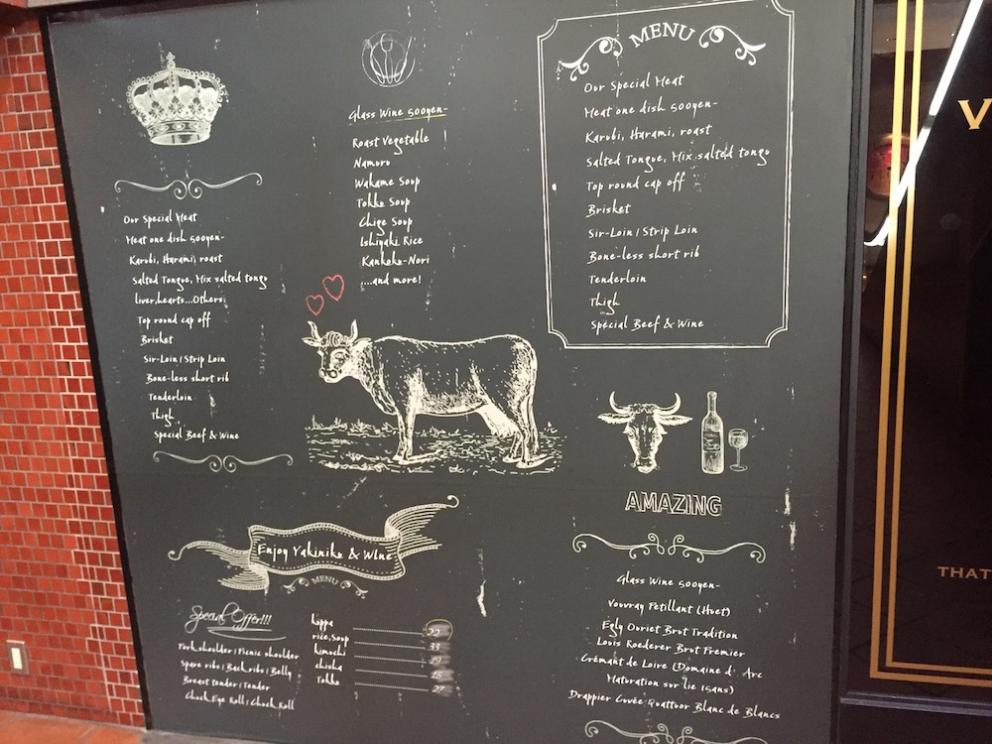 Our Special Meat
Meat one dish 500yen-
Karubi, Harami, roast
Salted Tongue, Mix salted tongu
liver.hearts...Others
Top round cap off
Brisket
Sir-Loin / Strip Loin
Bone-less short rib
Tenderloin
Thigh
Special Beef & Wine
Glass Wine 500yen-
Roast Vegetable
Namuru
Wakame Soup
Tokku Soup
Chige Soup
Ishiyaki Rice
Kankoku-Nori
....and more!
MENU
Our Special Meat
Meat one dish 500yen-
Karubi, Harami, roast
Salted Tongue, Mix salted tongu
Top round cap off
Brisket
Sir-Loin / Strip Loin
Bone-less short rib
Tenderloin
Thigh
Special Beef & Wine
Enjoy Yakiniku & Wine
MENU
Special Offer!!!
Pork shoulder / Picnic shoulder
Spare ribs / Back ribs / Belly
Breast tender / Tender
Chuck Eye Roll / Chuck Roll
kuppa
rice.Soup
kimuchi
chisha
Tokku
AMAZING
Glass Wine 500yen-
Vouvray Petillant (Huet)
Egly Ouriet Brut Tradition
Louis Roederer Brut Premier
Crémant de Loire (Domaine d' Arc
Maturation sur lie 15ans)
Drappier Cuvée Quattuor Blanc de Blancs
V
THAT